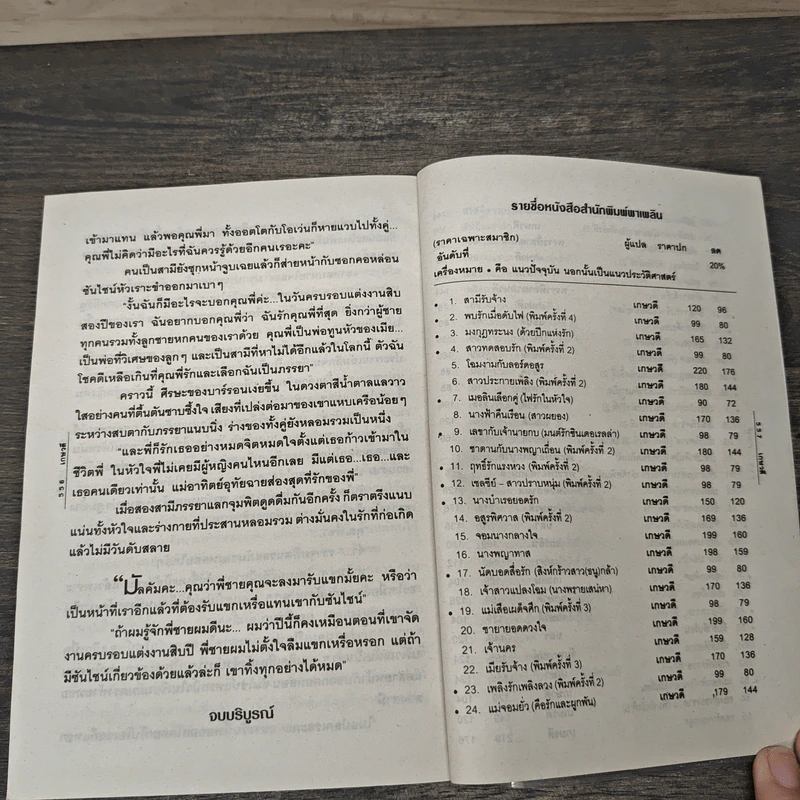 เข้ามาแทน แล้วพอคุณพี่มา ทั้งออตโตกับโอเว่นก็หายแวบไปทั้งคู่...
คุณพี่ไม่คิดว่ามีอะไรที่ฉันควรรู้ด้วยอีกคนเรอะคะ"
คนเป็นสามียังซุกหน้าจูบเฉยแล้วก็ส่ายหน้ากับซอกคอหล่อน
ซันไชน์หัวเราะขำออกมาเบาๆ
"งั้นฉันก็มีอะไรจะบอกคุณพี่ค่ะ...ในวันครบรอบแต่งงานสิบ
สองปีของเรา ฉันอยากบอกคุณพี่ว่า ฉันรักคุณพี่ที่สุด ยิ่งกว่าผู้ชาย
ทุกคนรวมทั้งลูกชายหกคนของเราด้วย คุณพี่เป็นพ่อทูนหัวของเมีย...
เป็นพ่อที่วิเศษของลูกๆ และเป็นสามีที่หาไม่ได้อีกแล้วในโลกนี้ ตัวฉัน
โชคดีเหลือเกินที่คุณพี่รักและเลือกฉันเป็นภรรยา"
คราวนี้ ศีรษะของบาร์รอนเงยขึ้น ในดวงตาสีน้ำตาลแวววาว
ใสอย่างคนที่ตื้นตันซาบซึ้งใจ เสียงที่เปล่งต่อมาของเขาแหบเครือน้อยๆ
ระหว่างสบตากับภรรยาแนบนิ่ง ร่างของทั้งคู่ยังหลอมรวมเป็นหนึ่ง
"และพี่ก็รักเธออย่างหมดจิตหมดใจตั้งแต่เธอก้าวเข้ามาใน
ชีวิตพี่ ในหัวใจพี่ไม่เคยมีผู้หญิงคนไหนอีกเลย มีแต่เธอ...เธอ...และ
เธอคนเดียวเท่านั้น แม่อาทิตย์อุทัยฉายส่องสุดที่รักของพี่"
เมื่อสองสามีภรรยาแลกจุมพิตดูดดื่มกันอีกครั้ง ก็ตราตรึงแนบ
แน่นทั้งหัวใจและร่างกายที่ประสานหลอมรวม ต่างมั่นคงในรักที่ก่อเกิด
แล้วไม่มีวันดับสลาย
"มัลคัมคะ...คุณว่าพี่ชายคุณจะลงมารับแขกมั้ยคะ หรือว่า
เป็นหน้าที่เราอีกแล้วที่ต้องรับแขกเหรื่อแทนเขากับซันไชน์"
"ถ้าผมรู้จักพี่ชายผมดีนะ... ผมว่าปีนี้ก็คงเหมือนตอนที่เขาจัด
งานครบรอบแต่งงานสิบปี พี่ชายผมไม่ตั้งใจลืมแขกเหรื่อหรอก แต่ถ้า
มีซันไชน์เกี่ยวข้องด้วยแล้วล่ะก็ เขาทิ้งทุกอย่างได้หมด"
จบบริบูรณ์
556 เกษวดี
รายชื่อหนังสือสำนักพิมพ์พาเพลิน
(ราคาเฉพาะสมาชิก)
อันดับที่ ผู้แปล ราคาปก ลด
20%
เครื่องหมาย • คือ แนวปัจจุบัน นอกนั้นเป็นแนวประวัติศาสตร์
• 1. สามีรับจ้าง เกษวดี 120 96
• 2. พบรักเมื่อดับไฟ (พิมพ์ครั้งที่ 4) เกษวดี 99 80
• 3. มงกุฎทระนง (ด้วยปีกแห่งรัก) เกษวดี 165 132
• 4. สาวทดสอบรัก (พิมพ์ครั้งที่ 2) เกษวดี 99 80
5. โฉมงามกับลอร์ดอสูร เกษวดี 220 176
6. สาวประกายเพลิง (พิมพ์ครั้งที่ 2) เกษวดี 180 144
• 7. เมอลินเลือกคู่ (ไฟรักในหัวใจ) เกษวดี 90 72
8. นางฟ้าคืนเรือน (สาวผยอง) เกษวดี 170 136
• 9. เลขากับเจ้านายกบ (มนต์รักซินเดอเรลล่า) เกษวดี 98 79
10. ซาตานกับนางพญาเถื่อน (พิมพ์ครั้งที่ 2) เกษวดี 180 144
• 11. ฤทธิ์รักแรงหวง (พิมพ์ครั้งที่ 2) เกษวดี 98 79
• 12. เชลซีย์ – สาวปราบหนุ่ม (พิมพ์ครั้งที่ 2) เกษวดี 98 79
• 13. นางบำเรอยอดรัก เกษวดี 150 120
14. อสูรพิศวาส (พิมพ์ครั้งที่ 2) เกษวดี 169 136
15. จอมนางกลางใจ เกษวดี 199 160
16. นางพญาทาส เกษวดี 198 159
• 17. นัดบอดสื่อรัก (สิงห์กร้าวสาว(ซน)กล้า) เกษวดี 99 80
18. เจ้าสาวแปลงโฉม (นางพรายเสน่หา) เกษวดี 170 136
• 19. แม่เสือเผด็จศึก (พิมพ์ครั้งที่ 3) เกษวดี 98 79
20. ชายายอดดวงใจ เกษวดี 199 160
21. เจ้านคร เกษวดี 159 128
22. เมียรับจ้าง (พิมพ์ครั้งที่ 3) เกษวดี 170 136
• 23. เพลิงรักเพลิงลวง (พิมพ์ครั้งที่ 2) เกษวดี 99 80
• 24. แม่จอมยั่ว (คือรักและผูกพัน) เกษวดี 179 144
557 เกษวดี